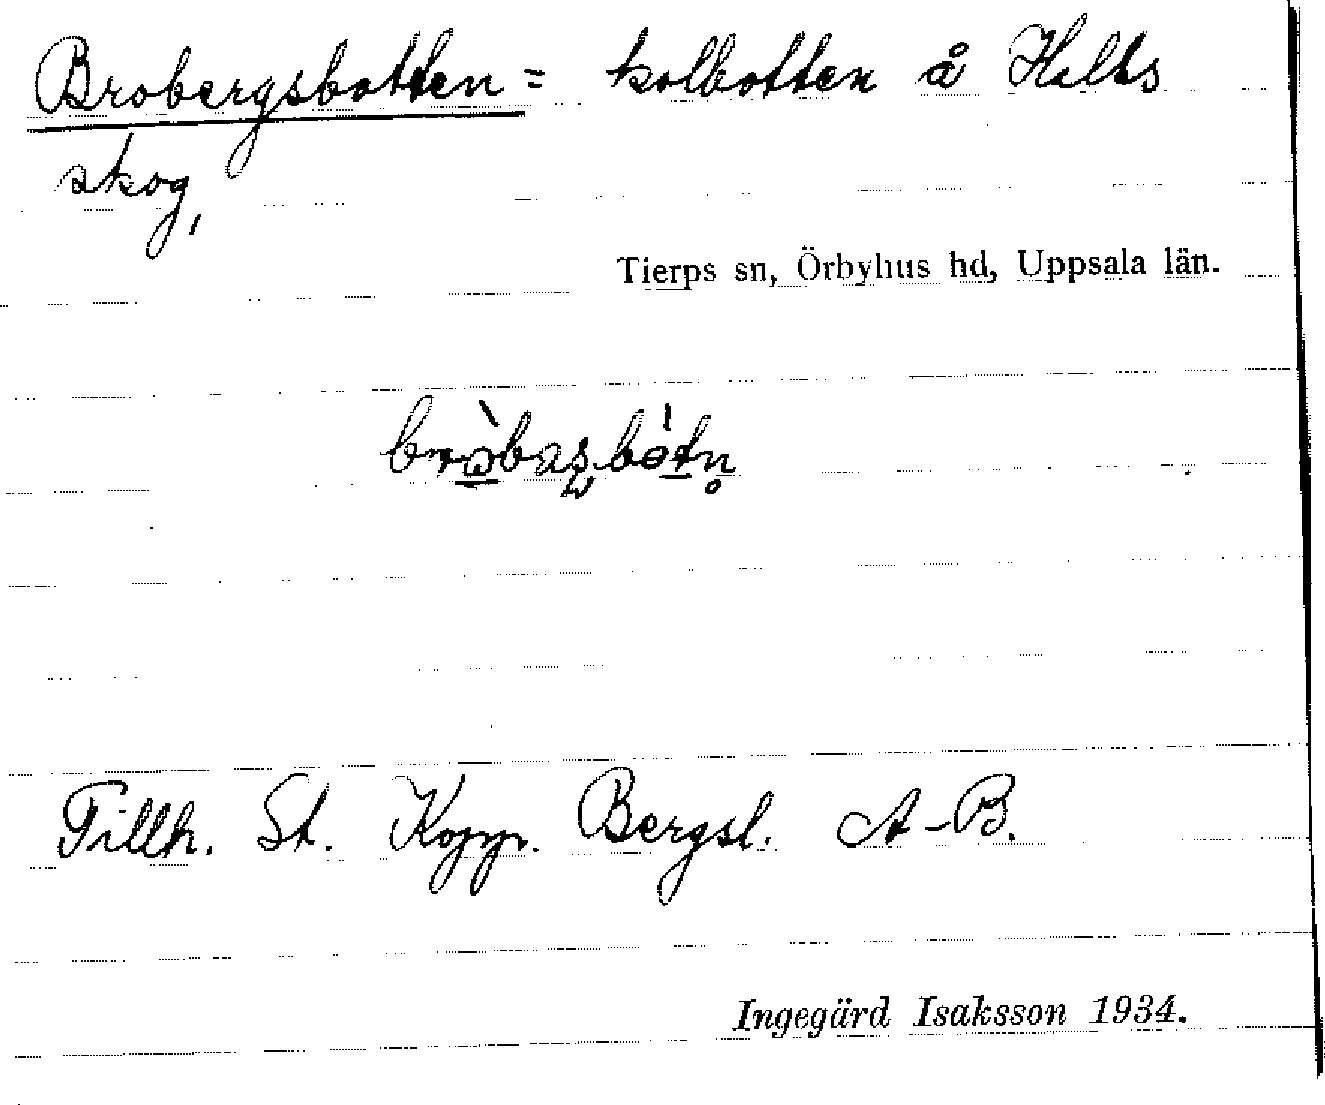 Brobergsbotten = kolbotten å Halls
skog,
Tierps sn, Örbyhus hd, Uppsala län.
Tillh. St. Kopp. Bergsl. A-B.
Ingegärd Isaksson 1934.